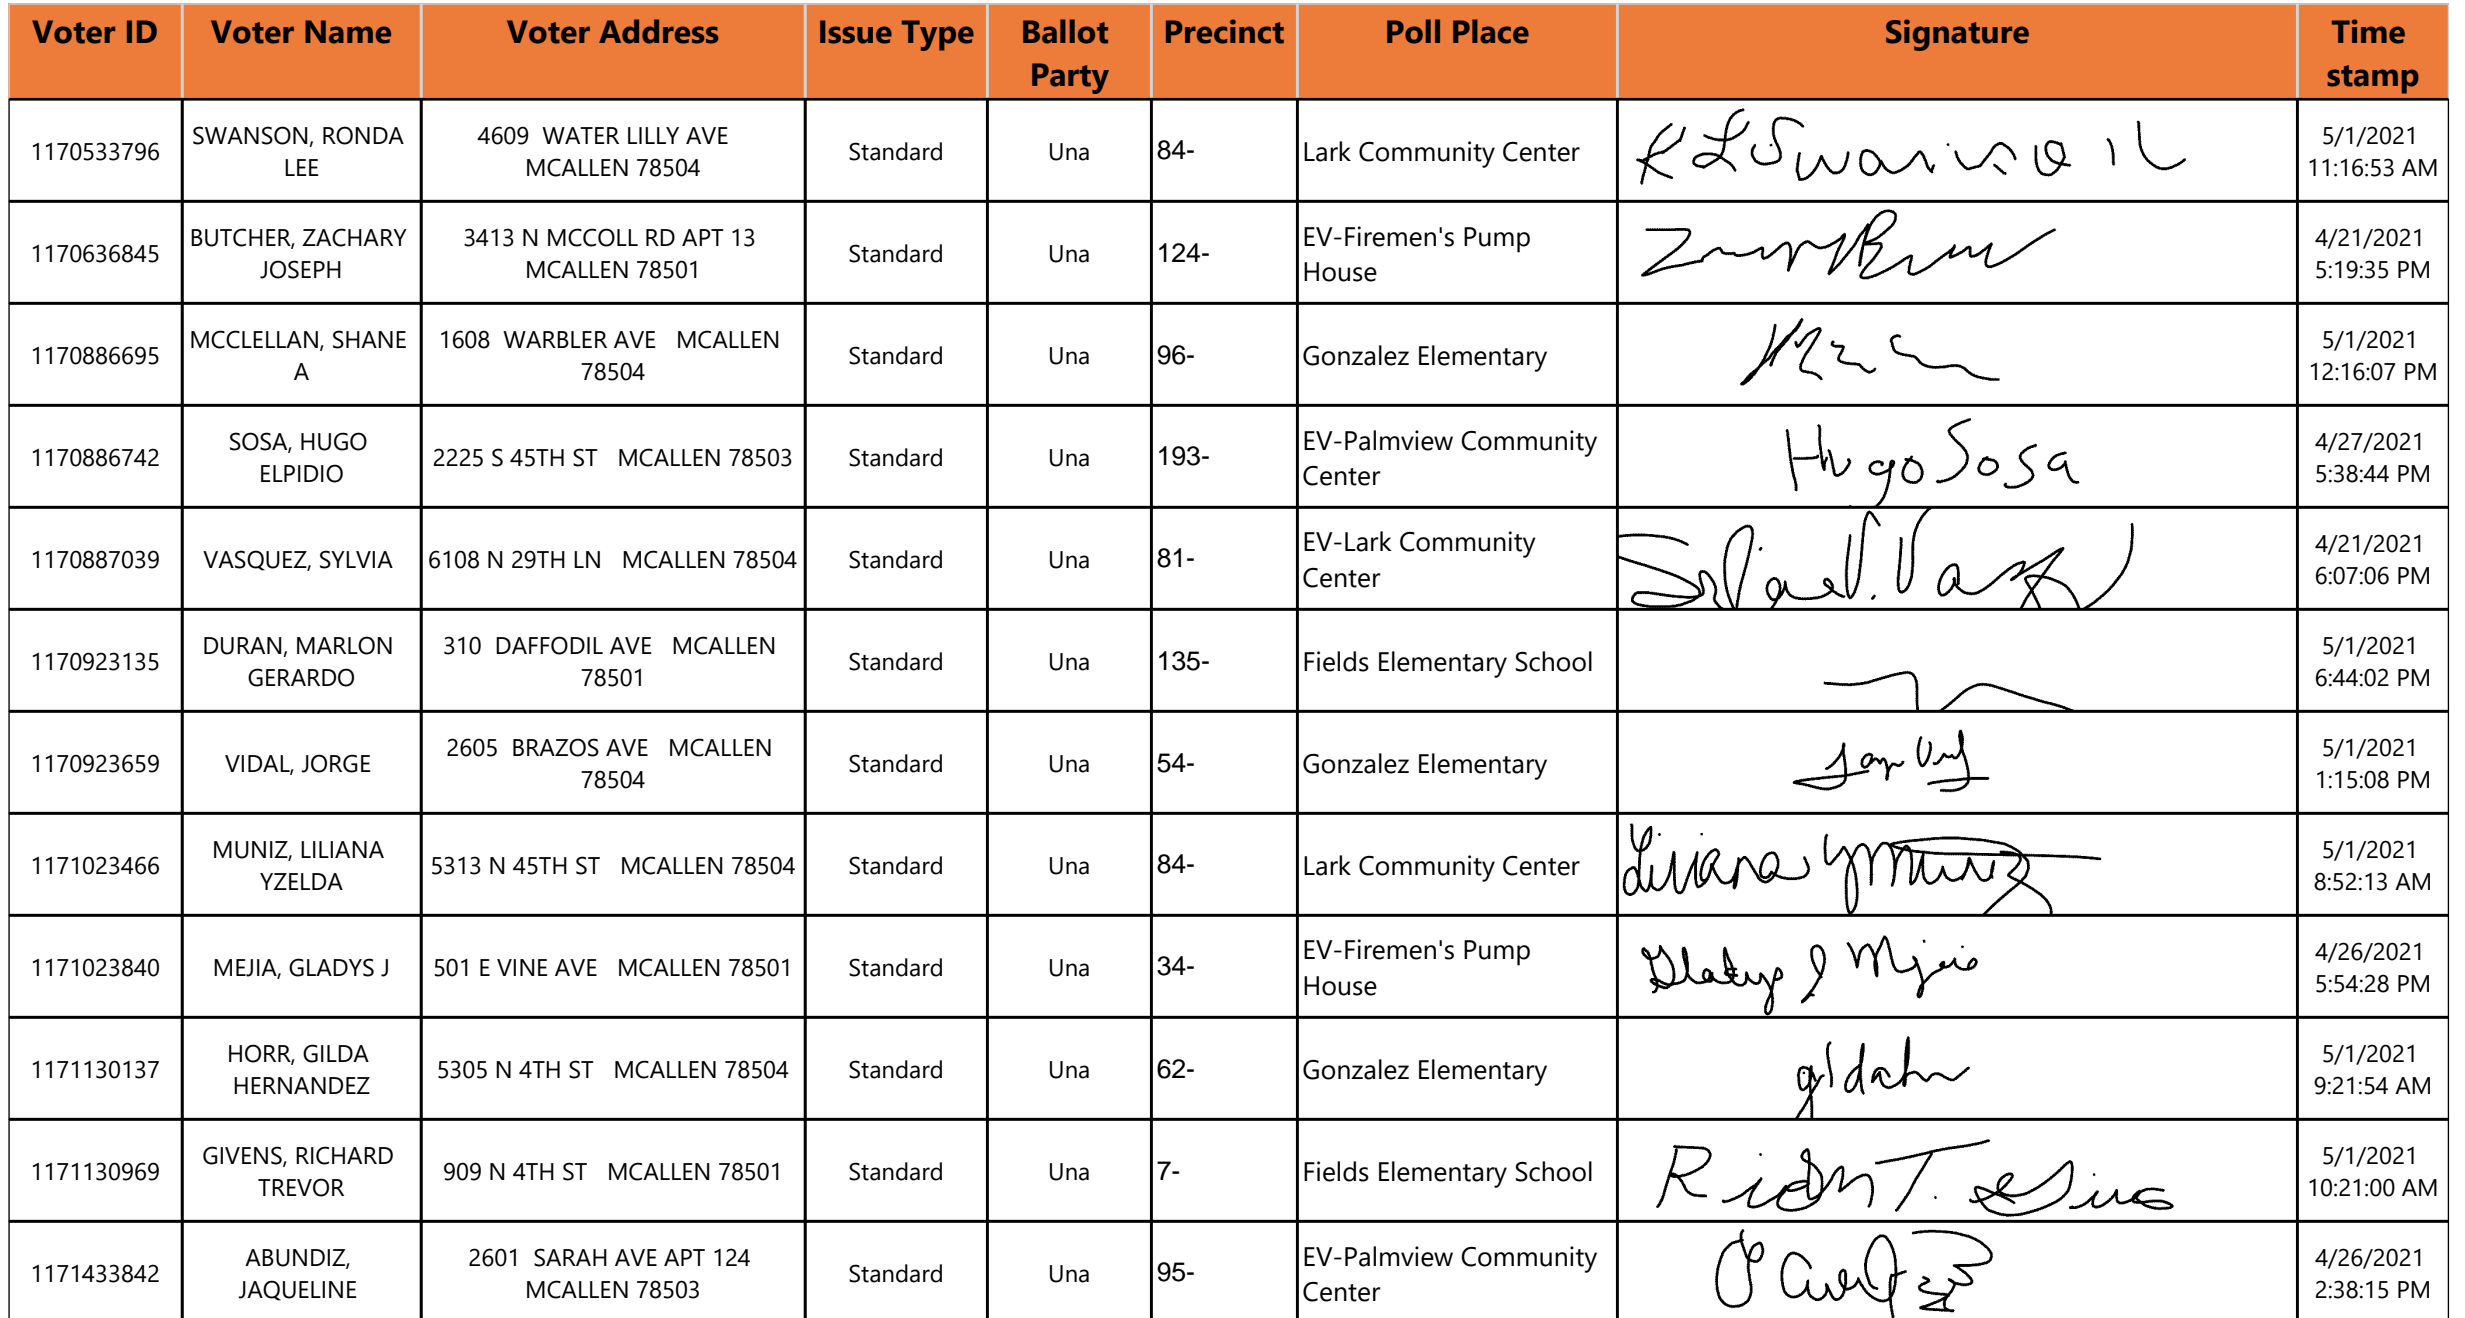 Voter ID Voter Name Voter Address Issue Type Ballot Party Precinct Poll Place Signature Time stamp
1170533796 SWANSON, RONDA LEE 4609 WATER LILLY AVE MCALLEN 78504 Standard Una 84- Lark Community Center 5/1/2021 11:16:53 AM
1170636845 BUTCHER, ZACHARY JOSEPH 3413 N MCCOLL RD APT 13 MCALLEN 78501 Standard Una 124- EV-Firemen's Pump House 4/21/2021 5:19:35 PM
1170886695 MCCLELLAN, SHANE A 1608 WARBLER AVE MCALLEN 78504 Standard Una 96- Gonzalez Elementary 5/1/2021 12:16:07 PM
1170886742 SOSA, HUGO ELPIDIO 2225 S 45TH ST MCALLEN 78503 Standard Una 193- EV-Palmview Community Center Hugo Sosa 4/27/2021 5:38:44 PM
1170887039 VASQUEZ, SYLVIA 6108 N 29TH LN MCALLEN 78504 Standard Una 81- EV-Lark Community Center 4/21/2021 6:07:06 PM
1170923135 DURAN, MARLON GERARDO 310 DAFFODIL AVE MCALLEN 78501 Standard Una 135- Fields Elementary School 5/1/2021 6:44:02 PM
1170923659 VIDAL, JORGE 2605 BRAZOS AVE MCALLEN 78504 Standard Una 54- Gonzalez Elementary 5/1/2021 1:15:08 PM
1171023466 MUNIZ, LILIANA YZELDA 5313 N 45TH ST MCALLEN 78504 Standard Una 84- Lark Community Center Liliana Y Muniz 5/1/2021 8:52:13 AM
1171023840 MEJIA, GLADYS J 501 E VINE AVE MCALLEN 78501 Standard Una 34- EV-Firemen's Pump House Gladys J Mejia 4/26/2021 5:54:28 PM
1171130137 HORR, GILDA HERNANDEZ 5305 N 4TH ST MCALLEN 78504 Standard Una 62- Gonzalez Elementary 5/1/2021 9:21:54 AM
1171130969 GIVENS, RICHARD TREVOR 909 N 4TH ST MCALLEN 78501 Standard Una 7- Fields Elementary School 5/1/2021 10:21:00 AM
1171433842 ABUNDIZ, JAQUELINE 2601 SARAH AVE APT 124 MCALLEN 78503 Standard Una 95- EV-Palmview Community Center 4/26/2021 2:38:15 PM